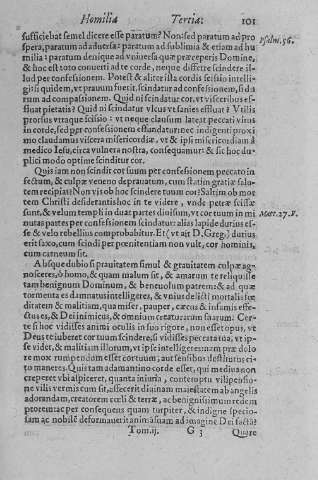 Homilia Tertia: 101
sufficiebat semel dicere esse paratum? Non: sed paratum ad pro
spera, paratum ad aduersa: paratum ad sublimia & etiam ad hu
milia: paratum denique ad vniuersa quæ præceperis Domine,
& hoc est toto conuerti ad te corde, neque differre scindere il-
lud per confessionem. Potest & aliter illa cordis scissio intelli-
gi: si quidem, vt prauum fuerit, scindatur ad confessionem, si du
rum ad compassionem. Quid ni scindatur cor, vt visceribus ef-
fluat pietatis? Quid ni scindatur vlcus vt sanies effluat? Vtilis
prorsus vtraque scissio: vt neque clausum lateat peccati virus
in corde, sed per confessionem effundatur: nec indigenti proxi
mo claudamus viscera misericordiæ, vt & ipsi misericordiam à
medico Iesu, circa vulnera nostra, consequamur: & sic hoc du-
plici modo optime scinditur cor.
Quis iam non scindit cor suum per confessionem peccato in
fectum, & culpæ veneno deprauatum, cum statim gratiæ salu-
tem recipiat? Non vis ob hoc scindere tuum cor? Saltim ob mor
tem Christi desiderantis hoc in te videre, vnde petræ scissæ
sunt, & velum templi in duas partes diuisum, vt cor tuum in mi
nutas partes per confessionem scindatur: alias lapide durius es-
se & velo rebellius comprobabitur. Et (vt ait D. Greg.) durius
erit saxo, cum scindi per pœnitentiam non vult, cor hominis,
cum carneum sit.
Absque dubio si prauitatem simul & grauitatem culpæ agno-
sceres, ò homo, & quam malum sit, & amarum te reliquisse
tam benignum Dominum, & beneuolum patrem: & ad quæ
tormenta es damnatus intelligeres, & vnius delicti mortalis fœ
ditatem & malitiam, qua miser, pauper, cæcus & infamis effe-
ctus es, & Dei inimicus, & omnium creaturarum suarum: Cer-
te si hoc vidisses animi oculis in suo rigore, non esset opus, vt
Deus te iuberet cor tuum scindere, si vidisses peccata tua, vt ip-
se videt, & malitiam illorum, vt ipsi intelligerem iam præ dolo
re mox rumpendum esset cor tuum, aut sensibus destitutus ci-
to maneres. Quis tam adamantino corde esset, qui medius non
creperet vbi aspiceret, quanta iniuria, contemptu vilipensio-
ne villi vermis cum sit, affecerit diuinam maiestatem ab angelis
adorandam, creatorem cœli & terræ, ac benignissimum redem
ptorem: ac per consequens quam turpiter, & indigne specio-
sam ac nobilē deformauerit animā suam ad imaginē Dei factā?
Tom. ij. G 3 Quare
Psalm. 56.
Matt. 27. F.